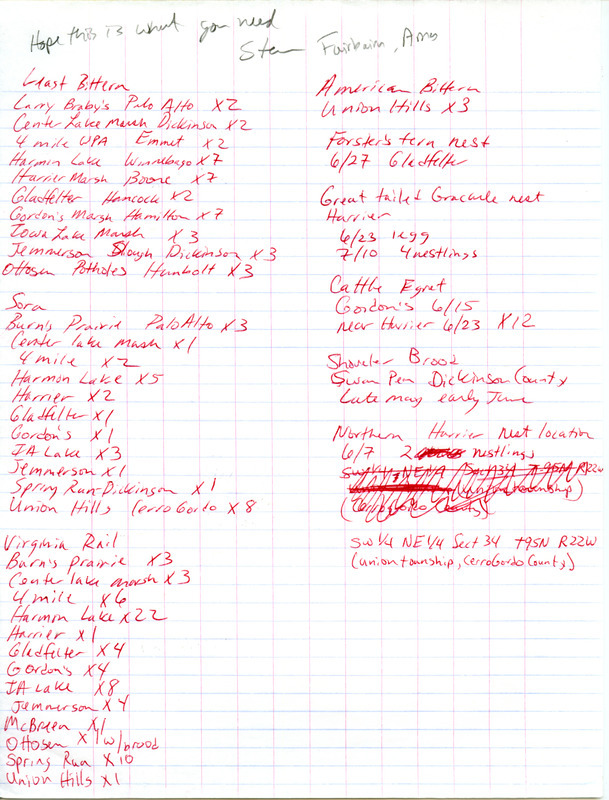 Hope this is what you need
Steve Fairbairn, Ames
Least Bittern
Larry Braby's Palo Alto X2
Center Lake Marsh Dickinson X2
4 mile WPA Emmet X2
Harmon Lake Winnebago X7
Harrier Marsh Boone X7
Gladfelter Hancock X2
Gordon's Marsh Hamilton X7
Iowa Lake Marsh X3
Jemmerson Slough Dickinson X3
Ottosen Potholes Humbolt X3
Sora
Burn's Prairie Palo Alto X3
Center lake marsh X1
4 mile X2
Harmon Lake X5
Harrier X2
Gladfelter X1
Gordon's X1
IA Lake X3
Jemmerson X1
Spring Run-Dickinson X1
Union Hills Cerro Gordo X8
Virginia Rail
Burn's prairie X3
Center lake marsh X3
4 mile X6
Harmon Lake X22
Harrier X1
Gladfelter X4
Gordon's X4
IA Lake X8
Jemmerson X4
McBreen X1
Ottosen X1 w/brood
Spring Run X10
Union Hills X1
American Bittern
Union Hills X3
Forster's tern nest
6/27 Gladfelter
Great tailed Grackle nest
Harrier
6/23 1egg
7/10 4nestlings
Cattle Egret
Gordon's 6/15
near Harrier 6/23 X12
Shoveler Brood
Swan Pen Dickinson County
Late may early June
Northern Harrier Nest location
6/7 2 nestlings
SW 1/4 NE 1/4 Sec 34 T95N R22W
(Union township)
(Cerro Gordo County)
SW 1/4 NE 1/4 Sect 34 T95N R22W
(Union township, Cerro Gordo County)